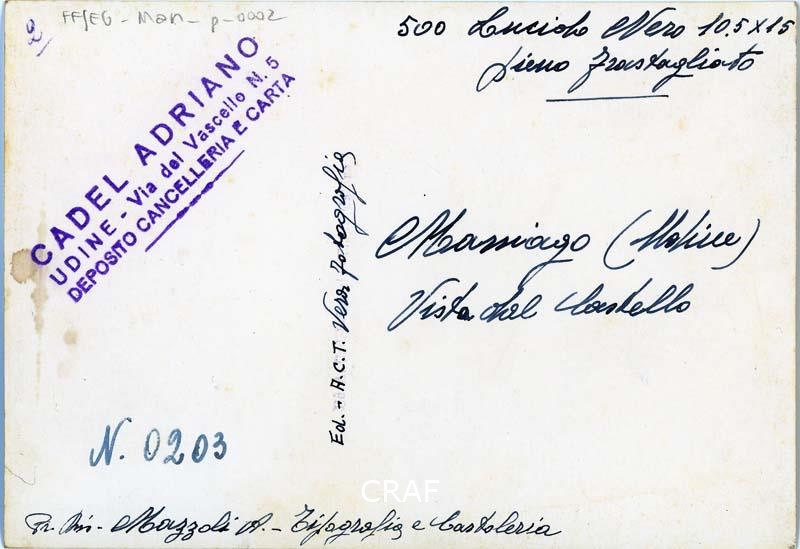 2
FF/EG - Man - p-0002
500 Lucido Nero 10.5x15
pieno frastagliato
CADEL ADRIANO
UDINE - Via del Vascello N. 5
DEPOSITO CANCELLERIA E CARTA
Ed. - A.C.T. Vera fotografia
Maniago (Udine)
Vista dal Castello
N. 0203
CRAF
Mazzoli A. - Tipografia e Cartoleria